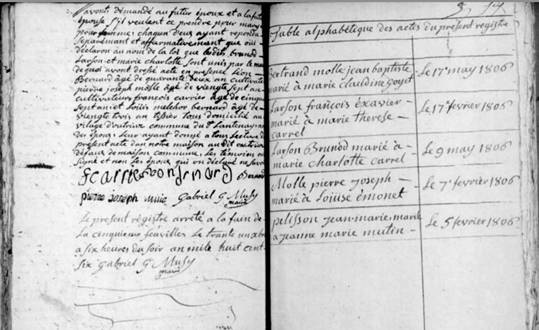 avons demandé au futur époux et a la fut
épouse s'il veulent ce prendre pour mary
pour femme; chaqun deux ayant repondu
separement et affirmativement que oui
declaron au nom de la loi que ledits brunod
Larson et marie charlotte sont unis par le mar
de quoi avont dressé acte en presence
Bernard âgé de quarante deux an cultivate
pierre joseph molle âgé de viengte sent an
cultivateur françois carrier âgé de cinq
sent an et Louis melchor bernard âgé de
viengte trois an tous domicilié au
vilage
du époux; leur ayant donné a tous lecture du
present acte dan notre maison au dit
defaut de maison commune. Les temoien on
signé et non Les époux qui on declaré ne savoir
f carrier
pierre joseph molle Gabriel G Musy
maire
Le present régistre arrêté a la fain de
La cinquieme feuilles. Le trante un xbre
a six heures du soir an mile huit cent
six Gabriel G Musy
maire
Table alphabétique des actes du present registre
Bertrand molle jean baptiste
marié à marie claudine goyet
Le 17e may 1806
Larson françois éxavier
marié à marie therese
carrel
Le 17e fevrier 1806
Larson Brunod marié à
marie charlotte carrel
Le 9 may 1806
Molle pierre joseph
marié à Loiuse émonet
Le 7e fevrier 1806
pelisson jean marie marié
a jeanne marie mutin
Le 5 fevrier 1806